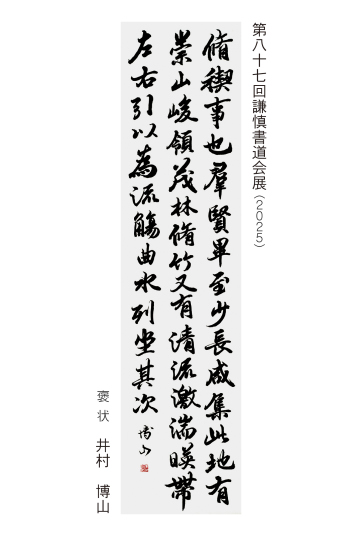 第八十七回謙慎書道会展(2025)
脩稧事也羣賢畢至少長咸集此地有
崇山峻領茂林脩竹又有清流激湍暎帶
左右引以為流觴曲水列坐其次 博山
褒状 井村 博山